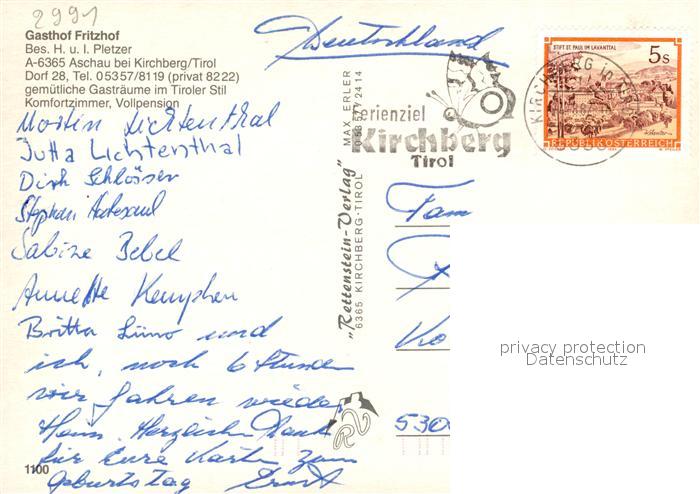 2991
Gasthof Fritzhof
Bes. H. u. I. Pletzer
A-6365 Aschau bei Kirchberg/Tirol
Dorf 28, Tel. 05357/8119 (privat 8222)
gemütliche Gasträume im Tiroler Stil
Komfortzimmer, Vollpension
Deutschland
Ferienziel
Kirchberg
Tirol
STIFT ST. PAUL IM LAVANTTAL
5s
REPUBLIK ÖSTERREICH
KIRCHBERG in TIROL
Martin Lichtenthal
Jutta Lichtenthal
Dirk Schlösser
Stephan
Sabine Bebel
Annette Kemphen
Britta und
ich, noch 6 Stunden
wir fahren wieder
Heim. Herzlichen Dank
für Eure Karten zum
Geburtstag Ernst
"Rettenstein-Verlag" MAX ERLER
6365 KIRCHBERG-TIROL
Fam
Ko
530
privacy protection
Datenschutz
1100